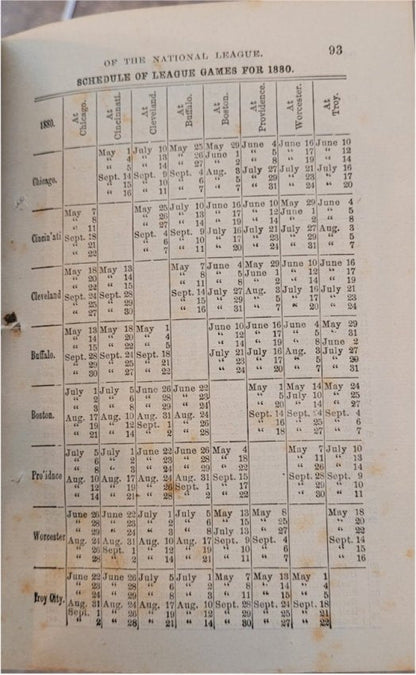 OF THE NATIONAL LEAGUE. 93
SCHEDULE OF LEAGUE GAMES FOR 1880.
1880. At Chicago. At Cincinnati. At Cleveland. At Buffalo. At Boston. At Providence. At Worcester. At Troy.
May 1 July 10 May 25 May 29 June 4 June 16 June 10
" 4 " 13 " 26 June 1 " 5 " 17 " 12
Chicago. " 5 " 14 " 27 " 2 " 8 " 19 " 14
Sept. 14 Sept. 9 Sept. 4 Aug. 3 July 27 July 21 July 16
" 15 " 10 " 6 " " 29 " 23 " 17
" 16 " 11 " 7 " 7 " 31 " 24 " 20
May 7 May 25 July 10 June 16 June 10 May 29 June 4
" 8 " 26 " 13 " 17 " 12 June 1 " 5
" 11 " 27 " 14 " 19 " 14 " 2 " 8
Cincin'ati Sept. 18 Sept. 4 Sept. 9 July 16 July 21 July 27 Aug. 3
" 21 " 6 " 10 " 17 " 23 " 29 " 5
" 22 " 7 " 11 " 20 " 24 " 31 " 7
May 18 May 13 May 7 June 4 May 29 June 10 June 16
" 20 " 14 " 8 " 5 June 1 " 12 " 17
" 22 " 15 " 11 " 8 " 2 " 14 " 19
Cleveland Sept. 24 Sept. 28 Sept. 14 July 27 Aug. 3 July 16 July 21
" 25 " 29 " 15 " 29 " 5 " 17 " 23
" 27 " 30 " 16 " 31 " 7 " 20 " 24
May 13 May 18 May 1 June 10 June 16 June 4 May 29
" 14 " 20 " 4 " 12 " 17 " 5 " 31
" 15 " 22 " 5 " 14 " 19 " 8 June 2
Buffalo. Sept. 28 Sept. 24 Sept. 18 July 21 July 16 Aug. 3 July 27
" 29 " 25 " 21 " 23 " 17 " 5 "
" 30 " 27 " 22 " 24 " 20 " 7 " 31
July 1 July 5 June 26 June 22 May 1 May 14 May 24
" 2 " 6 " 28 " 23 " July 10 " 25
" 3 " 8 " 29 " 24 " 20 " 14 " 27
Boston. Aug. 17 Aug. 10 Aug. 31 Aug. 24 Sept. 14 Sept. 24 Sept. 4
" 19 " 12 Sept. 1 " 26 " 16 " 25 " 6
" 21 " 14 " 2 " 28 " 18 " 27 " 7
July 5 July 1 June 22 June 26 May 4 May 7 July 10
" 6 " 2 " 23 " 28 " 18 " 11 " 13
" 8 " 3 " 24 " 29 " 22 " 26 " 14
Pro'idnce Aug. 10 Aug. 17 Aug. 24 Aug. 31 Sept. 15 Sept. 28 Sept. 9
" 12 " 19 " 26 Sept. 1 " 17 " 29 " 10
" 14 " 21 " 28 " 2 " 22 " 30 " 11
June 26 June 22 July 1 July 5 May 13 May 8 May 18
" 28 " 23 " 2 " 6 " 15 " 25 " 20
" 29 " 24 " 3 " 8 July 13 " 27 " 22
Worcester Aug. 24 Aug. 31 Aug. 10 Aug. 17 Sept. 9 Sept. 4 Sept. 14
" 26 Sept. 1 " 12 " 19 " 10 " 6 " 15
" 28 " 2 " 14 " 21 " 11 " 7 " 16
June 22 June 26 July 5 July 1 May 7 May 13 May 1
" 23 " 28 " 6 " 2 " 8 " 14 " 4
" 24 " 29 " 8 " 3 " 11 " 15 " 5
Troy City. Aug. 31 Aug. 24 Aug. 17 Aug. 10 Sept. 28 Sept. 24 Sept. 18
Sept. " 26 " 19 " 12 " 29 " 25 " 21
" 2 " 28 " 21 " 14 " 30 " 27 " 22